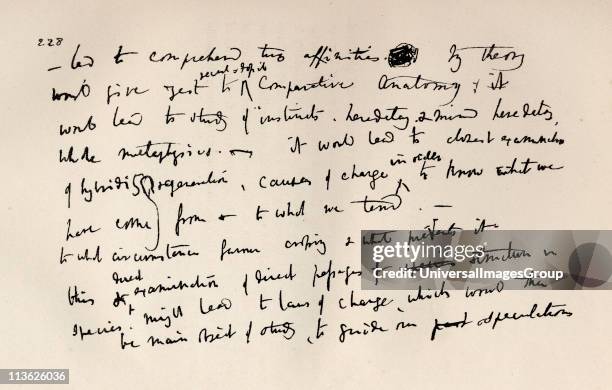 228
– led to comprehend two affinities. My theory
would give zest to recent & fossil Comparative Anatomy, & it
would lead to study of instincts, heredetary & mind heredetary,
whole metaphysics. – it would lead to closest examination
of hybridity regeneration, causes of change in order to know what we
have come from & to what we tend. –
to what circumstances favour crossing & what prevents it –
this & direct examination of direct passages of structure in
species, might lead to laws of change, which would then
be main object of study, to guide our speculations
gettyimages
Credit: UniversalImagesGroup
113626036